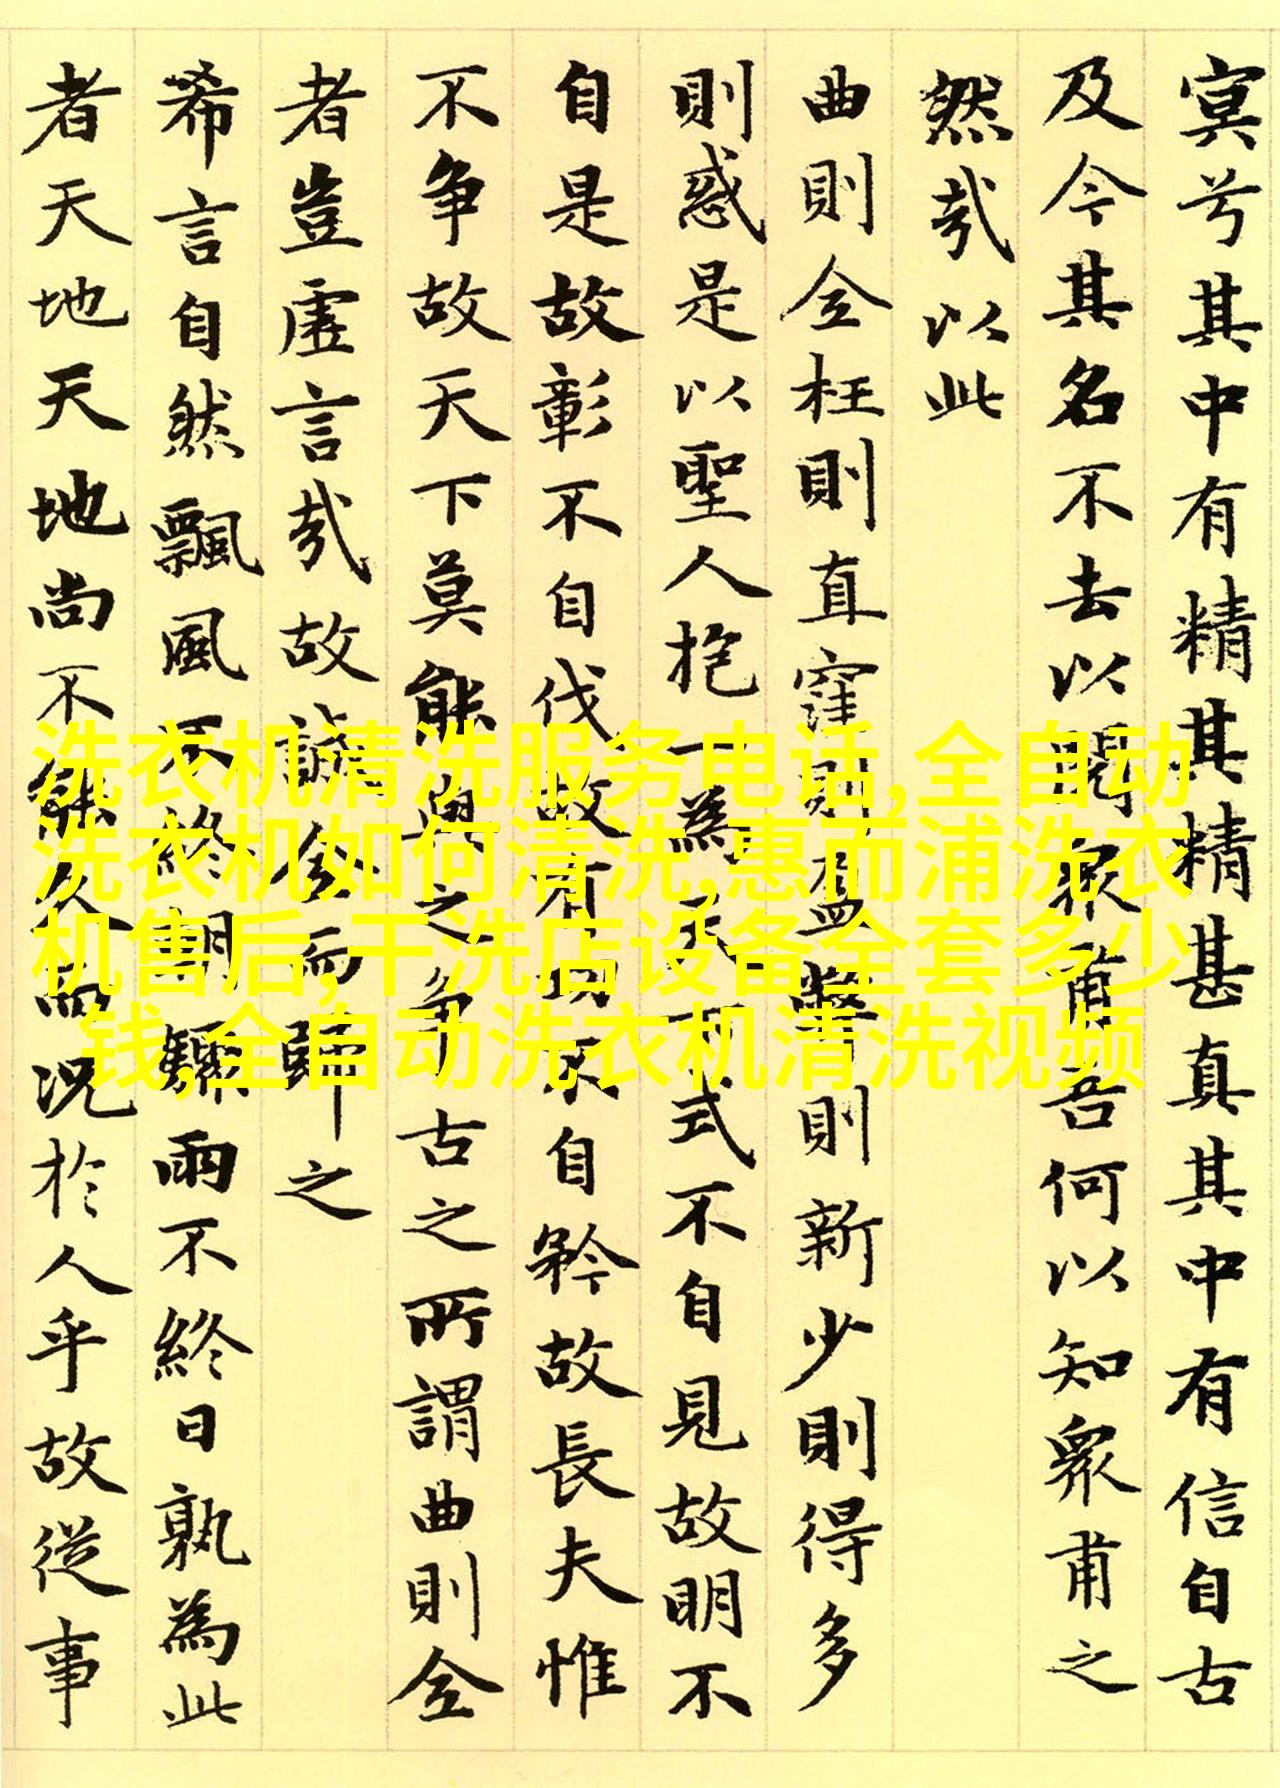 冥兮其中有精其精甚真其中有信自古
及今其名不去以閱眾甫吾何以知眾甫之
然哉以此
曲則全枉則直窪則盈弊則新少則得多
則惑是以聖人抱一為天下式不自見故明不
自是故彰不自伐故有功不自矜故長夫惟
不争故天下莫能與之争古之所謂曲則全
者豈虛言哉故誠全而歸之
希言自然飄風不終朝驟雨不終日孰為此
者天地天地尚不能久而況於人乎故從事
洗衣机清洗服务电话,全自动
洗衣机如何清洗,惠而浦洗衣
机售后,干洗店设备全套多少
钱,全自动洗衣机清洗视频